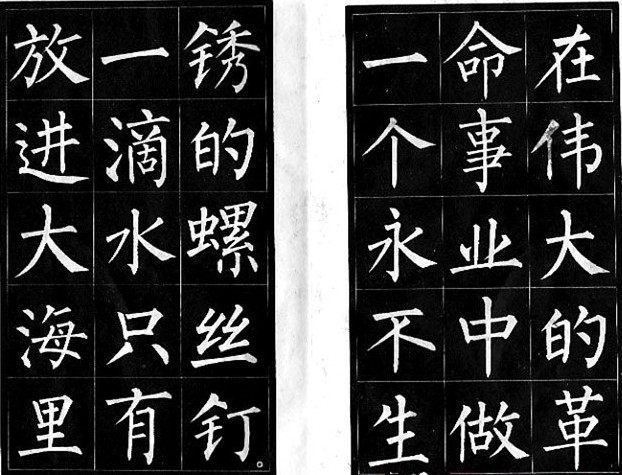 在伟大的革
命事业中做
一个永不生
锈的螺丝钉。
一滴水只有
放进大海里